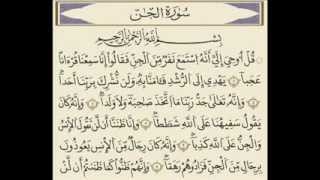 سُورَةُ الْجِنِّ
بِسْمِ اللَّهِ الرَّحْمَٰنِ الرَّحِيمِ
قُلْ أُوحِيَ إِلَيَّ أَنَّهُ اسْتَمَعَ نَفَرٌ مِنَ الْجِنِّ فَقَالُوا إِنَّا سَمِعْنَا قُرْآنًا
عَجَبًا ١ يَهْدِي إِلَى الرُّشْدِ فَآمَنَّا بِهِ وَلَنْ نُشْرِكَ بِرَبِّنَا أَحَدًا
٢ وَأَنَّهُ تَعَالَىٰ جَدُّ رَبِّنَا مَا اتَّخَذَ صَاحِبَةً وَلَا وَلَدًا ٣ وَأَنَّهُ كَانَ
يَقُولُ سَفِيهُنَا عَلَى اللَّهِ شَطَطًا ٤ وَأَنَّا ظَنَنَّا أَنْ لَنْ تَقُولَ الْإِنْسُ
وَالْجِنُّ عَلَى اللَّهِ كَذِبًا ٥ وَأَنَّهُ كَانَ رِجَالٌ مِنَ الْإِنْسِ يَعُوذُونَ
بِرِجَالٍ مِنَ الْجِنِّ فَزَادُوهُمْ رَهَقًا ٦ وَأَنَّهُمْ ظَنُّوا كَمَا ظَنَنْتُمْ أَنْ لَنْ